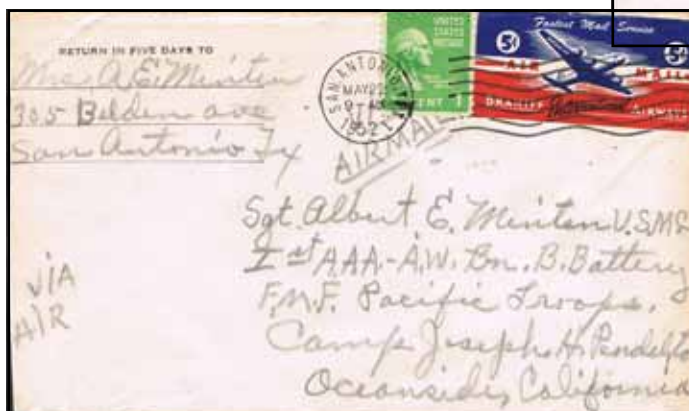 RETURN IN FIVE DAYS TO
Mrs. A. E. Minten
305 Belden ave
San Antonio Tx
SAN ANTONIO
MAY
1952
UNITED
STATES
POSTAGE
CENT 1
Fastest Mail Service
5¢ 5¢
AIR MAIL
BRANIFF International AIRWAYS
AIRMAIL
Sgt. Albert E. Minten U.S.M.C
1st AAA-A.W. Bn. B. Battery
F.M.F. Pacific Troops.
Camp Joseph H. Pendelto
Oceanside, California
VIA
AIR